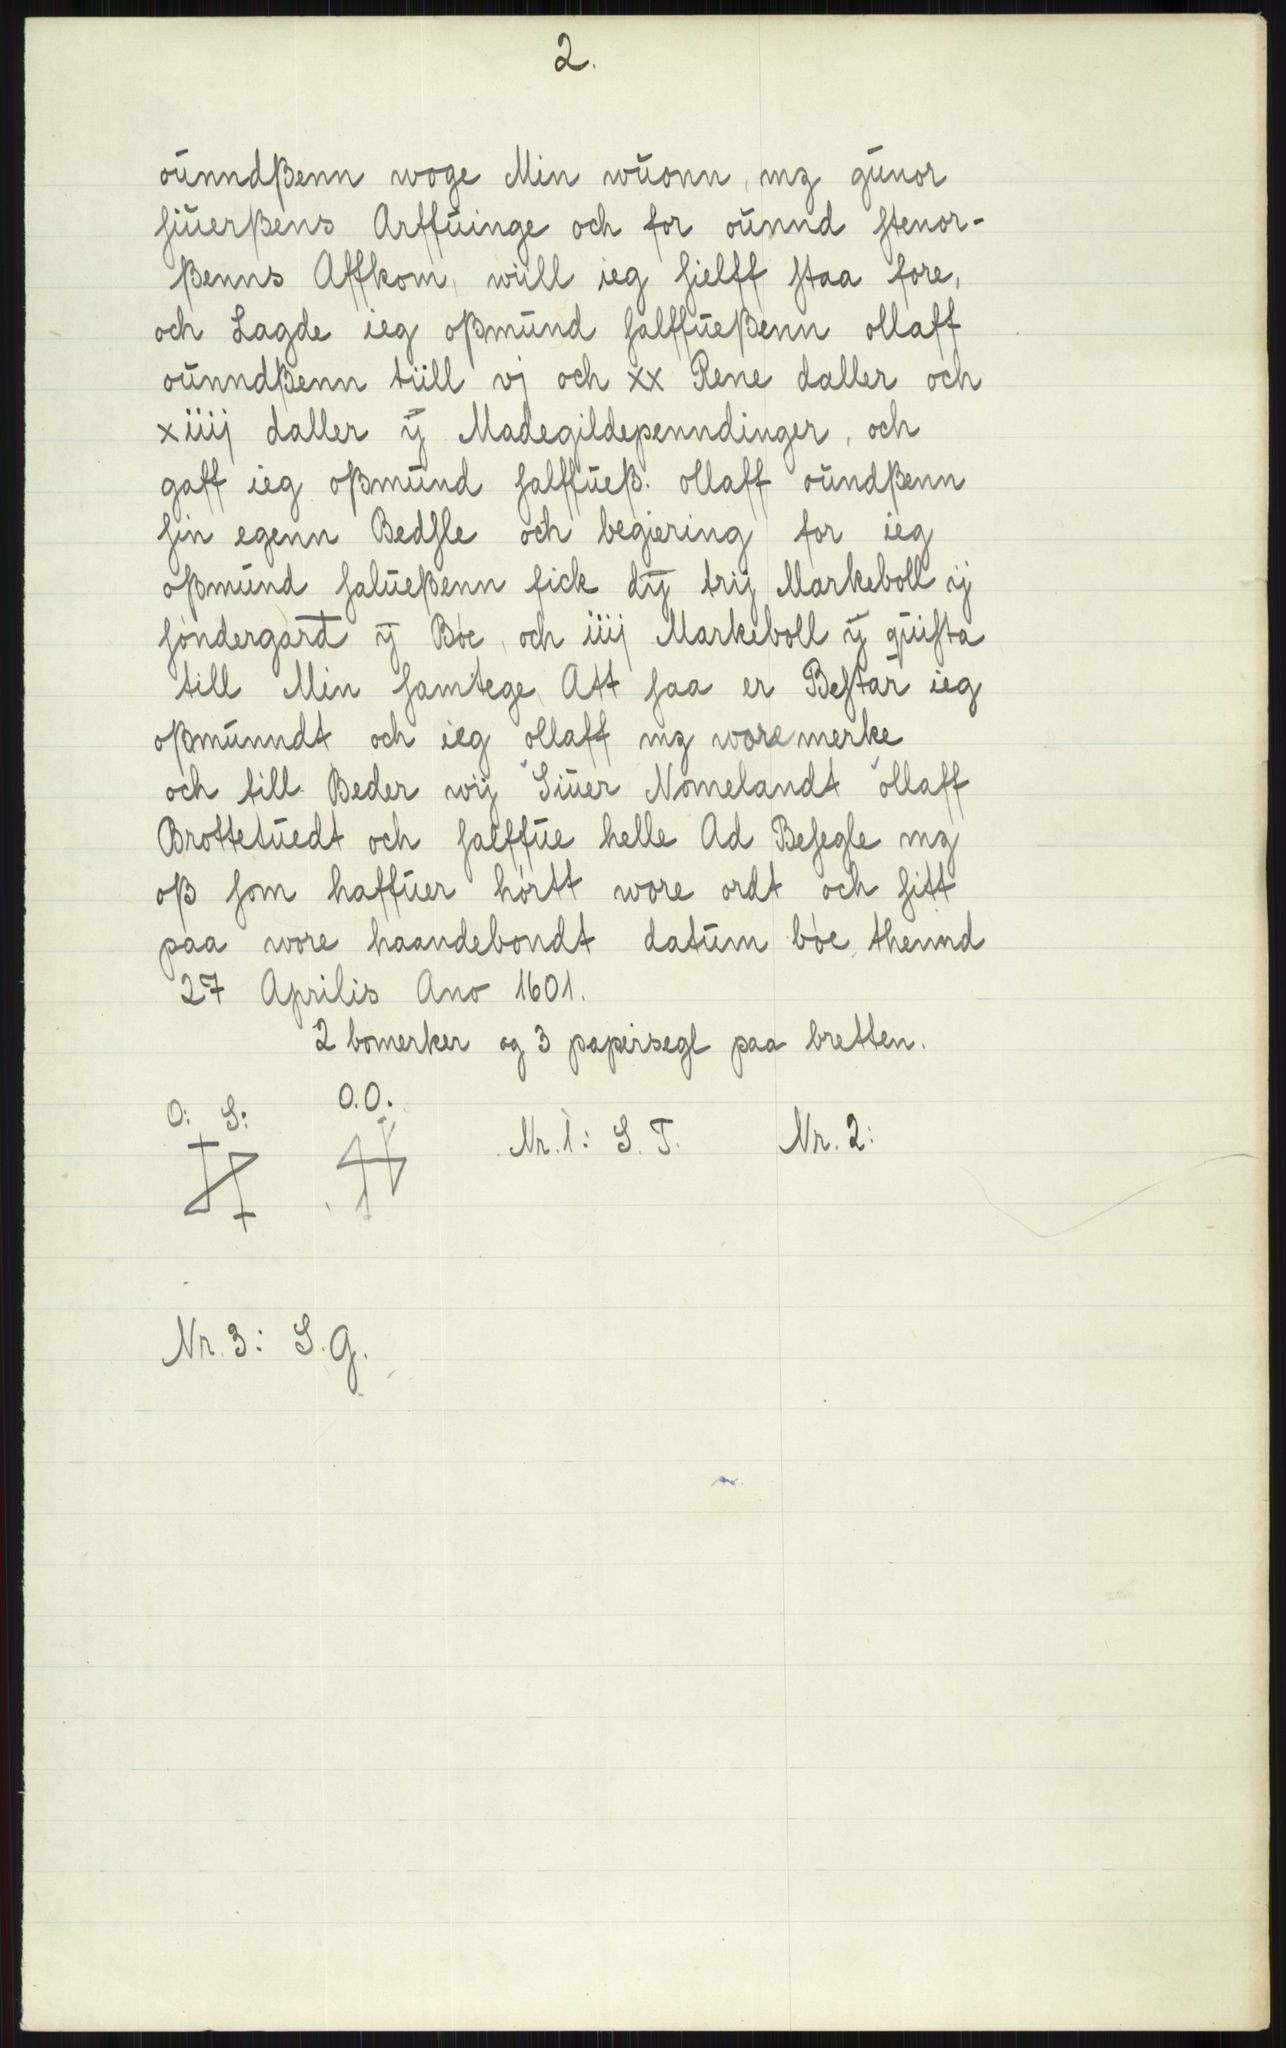 2.
oŭnndßenn woge Min wŭonn, mz gŭnor
siŭerßens Arffŭinge och for oŭnnd stenor-
ßenns Affkom, wiill ieg sielff staa fore,
och Lagde ieg oßmŭnd salffŭeßenn ollaff
oŭnndßenn tiill vj och xx Rene daller och
xiiij daller ÿ Madegildepenndinger, och
gaff ieg oßmŭnd salffŭeß. ollaff oŭndßenn
sin egenn Bedsle och begiering for ieg
oßmŭnd salŭeßenn fick dÿ trij Markeboll ij
søndergard ÿ Bøe, och iiij Markeboll ÿ qŭista
till Min samtege, Att saa er Bestar ieg
oßmŭnndt och ieg ollaff mz wore merke
och till Beder wij Siŭer Nomelandt ollaff
Brottetŭedt och salffŭe helle Ad Besegle mz
oß som haffŭer hørtt wore ordt och sitt
paa wore haandebondt datŭm bøe thennd
27 Aprilis Ano 1601.
2 bomerker og 3 papirsegl paa bretten.
O: S: O.O. Nr. 1: S. T. Nr. 2:
Nr. 3: S. G.